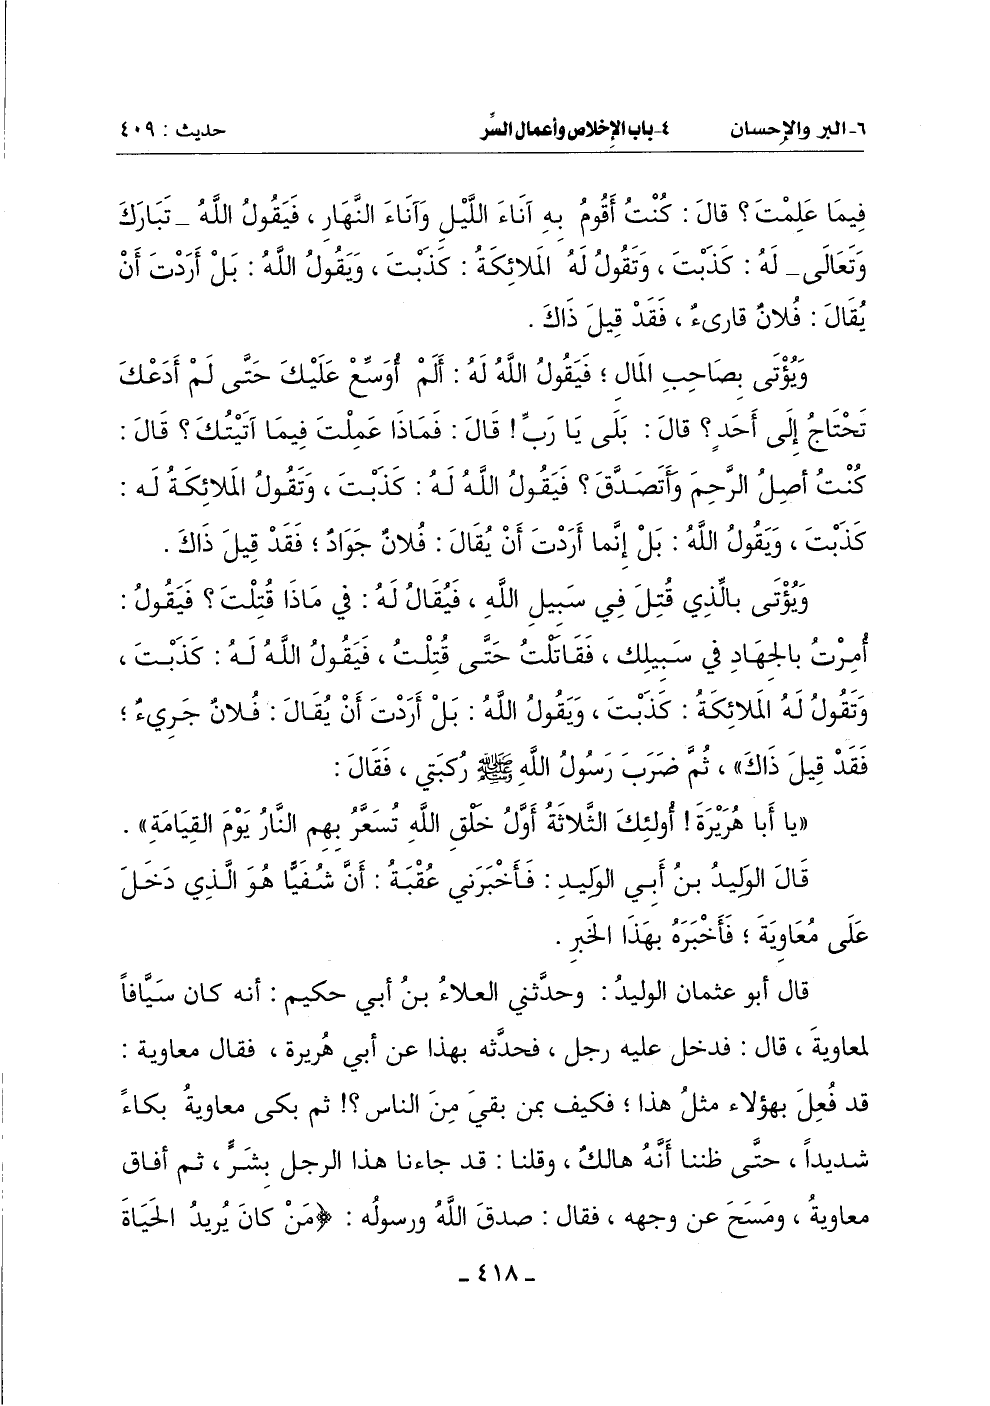 ٦ـ البر والإحسان ٤ـ باب الإخلاص وأعمال السِّر حديث : ٤٠٩
فِيمَا عَلِمْتَ؟ قالَ : كُنْتُ أَقُومُ بِهِ آنَاءَ اللَّيْلِ وَآنَاءَ النَّهَارِ ، فَيَقُولُ اللَّهُ ـ تَبَارَكَ
وَتَعَالَى ـ لَهُ : كَذَبْتَ ، وَتَقُولُ لَهُ المَلائِكَةُ : كَذَبْتَ ، وَيَقُولُ اللَّهُ : بَلْ أَرَدْتَ أَنْ
يُقَالَ : فُلانٌ قارىءٌ ، فَقَدْ قِيلَ ذَاكَ .
وَيُؤْتَى بِصَاحِبِ المَالِ ؛ فَيَقُولُ اللَّهُ لَهُ : أَلَمْ أُوَسِّعْ عَلَيْكَ حَتَّى لَمْ أَدَعْكَ
تَحْتَاجُ إِلَى أَحَدٍ؟ قالَ : بَلَى يَا رَبِّ! قالَ : فَمَاذَا عَمِلْتَ فِيمَا آتَيْتُكَ؟ قَالَ :
كُنْتُ أَصِلُ الرَّحِمَ وَأَتَصَدَّقَ؟ فَيَقُولُ اللَّهُ لَهُ : كَذَبْتَ ، وَتَقُولُ المَلائِكَةُ له :
كَذَبْتَ ، وَيَقُولُ اللَّهُ : بَلْ إِنَّما أَرَدْتَ أَنْ يُقَالَ : فُلانٌ جَوَادٌ ؛ فَقَدْ قِيلَ ذَاكَ .
وَيُؤْتَى بالَّذِي قُتِلَ فِي سَبِيلِ اللَّهِ ، فَيُقَالُ لَهُ : في مَاذَا قُتِلْتَ؟ فَيَقُولُ :
أُمِرْتُ بالجِهَادِ في سَبِيلِك ، فَقَاتَلْتُ حَتَّى قُتِلْتُ ، فَيَقُولُ اللَّهُ لَهُ : كَذَبْتَ ،
وَتَقُولُ لَهُ المَلائِكَةُ : كَذَبْتَ ، وَيَقُولُ اللَّهُ : بَلْ أَرَدْتَ أَنْ يُقَالَ : فُلانٌ جَرِيءٌ ؛
فَقَدْ قِيلَ ذَاكَ» ، ثُمَّ ضَرَبَ رَسُولُ اللَّهِ ﷺ رُكبَتي ، فَقَالَ :
«يا أَبا هُرَيْرَةَ! أُولئِكَ الثَّلاثَةُ أَوَّلُ خَلْقِ اللَّهِ تُسَعَّرُ بِهِم النَّارُ يَوْمَ القِيَامَةِ» .
قَالَ الوَلِيدُ بنُ أَبي الوَلِيدِ : فَأَخْبَرَني عُقْبَةُ : أَنَّ شُفَيًّا هُوَ الَّذِي دَخَلَ
عَلَى مُعَاوِيَةَ ؛ فَأَخْبَرَهُ بِهَذَا الخَبَرِ .
قال أبو عثمان الوليدُ : وحدَّثني العلاءُ بنُ أبي حكيم : أنه كان سَيَّافاً
لمعاويةَ ، قال : فدخل عليه رجل ، فحدَّثه بهذا عن أبي هُريرة ، فقال معاوية :
قد فُعِلَ بهؤلاء مثلُ هذا ؛ فكيف بمن بقيَ مِنَ الناس؟! ثم بكى معاويةُ بكاءً
شديداً ، حتَّى ظننا أَنَّهُ هالكٌ ، وقلنا : قد جاءنا هذا الرجل بِشَرٍّ ، ثم أفاق
معاويةُ ، ومَسَحَ عن وجهه ، فقال : صدقَ اللَّهُ ورسولُه : ﴿مَنْ كانَ يُريدُ الحَيَاةَ
ـ ٤١٨ ـ